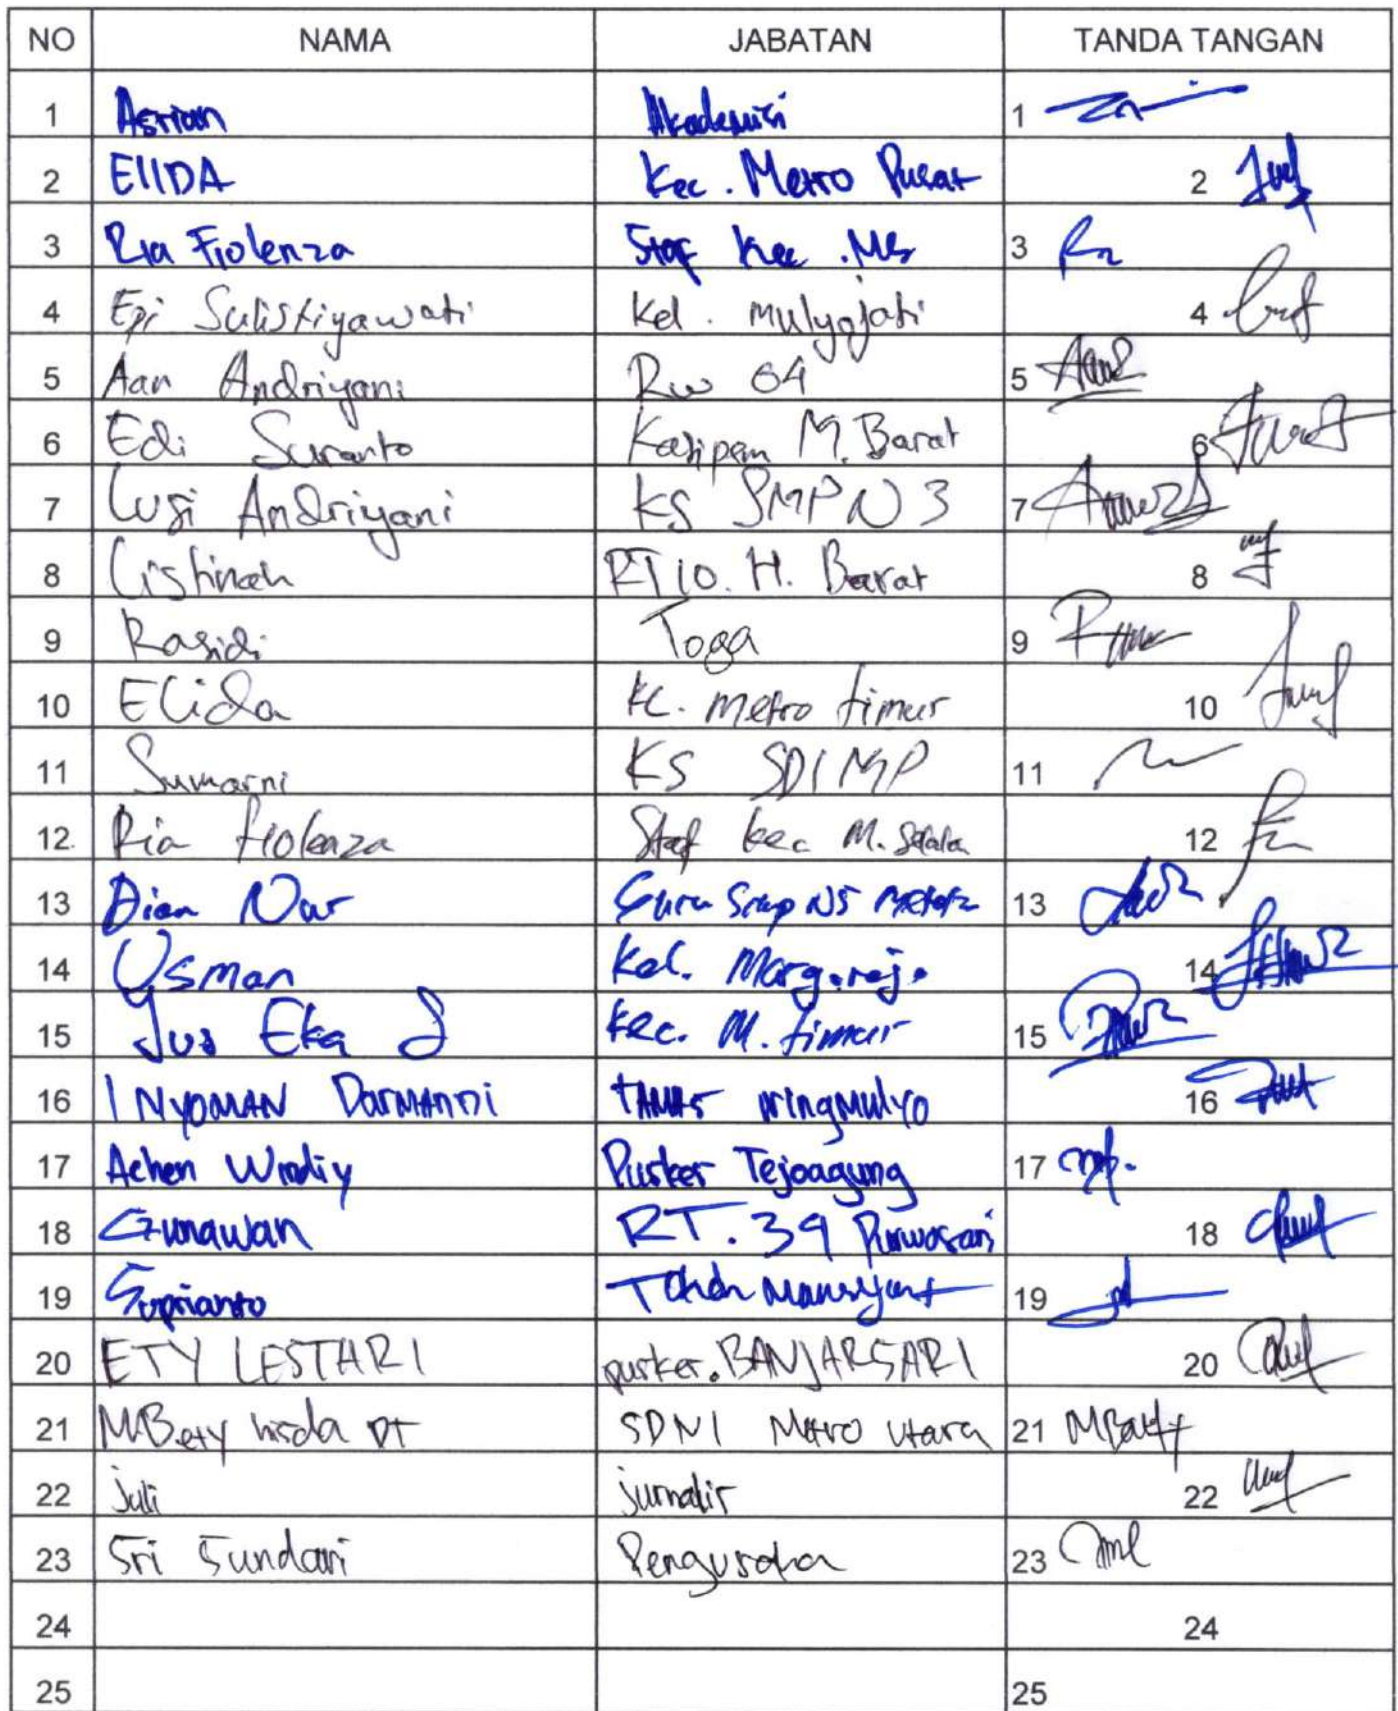 NO NAMA JABATAN TANDA TANGAN
1 Asrian Akademisi 1
2 EllDA Kec. Metro Pusat 2
3 Ria Fiolenza Staf Kec. MS 3
4 Epi Sulistiyawati Kel. Mulyojati 4
5 Aan Andriyani Rw 04 5
6 Edi Suranto Kasipem M. Barat 6
7 Lusi Andriyani KS SMPN 3 7
8 Listinah RT 10. H. Barat 8
9 Rasidi Toga 9
10 Elida Kc. Metro timur 10
11 Sumarni KS SDIMP 11
12. Ria Fiolenza Staf kec M. 12
13 Dian Nur Guru Smp N5 Metro 13
14 Usman Kel. Margorejo 14
15 Yus Eka S Kec. M. timur 15
16 I NYOMAN Darmanti 16
17 Achen Windiy Pusker Tejoagung 17
18 Gunawan RT. 39 Purwosari 18
19 Suprianto 19
20 ETY LESTARI pusker. BANJARSARI 20
21 M.Bety DT SDN1 Metro Utara 21
22 juli jurnalis 22
23 Sri Sundari Pengusaha 23
24 24
25 25